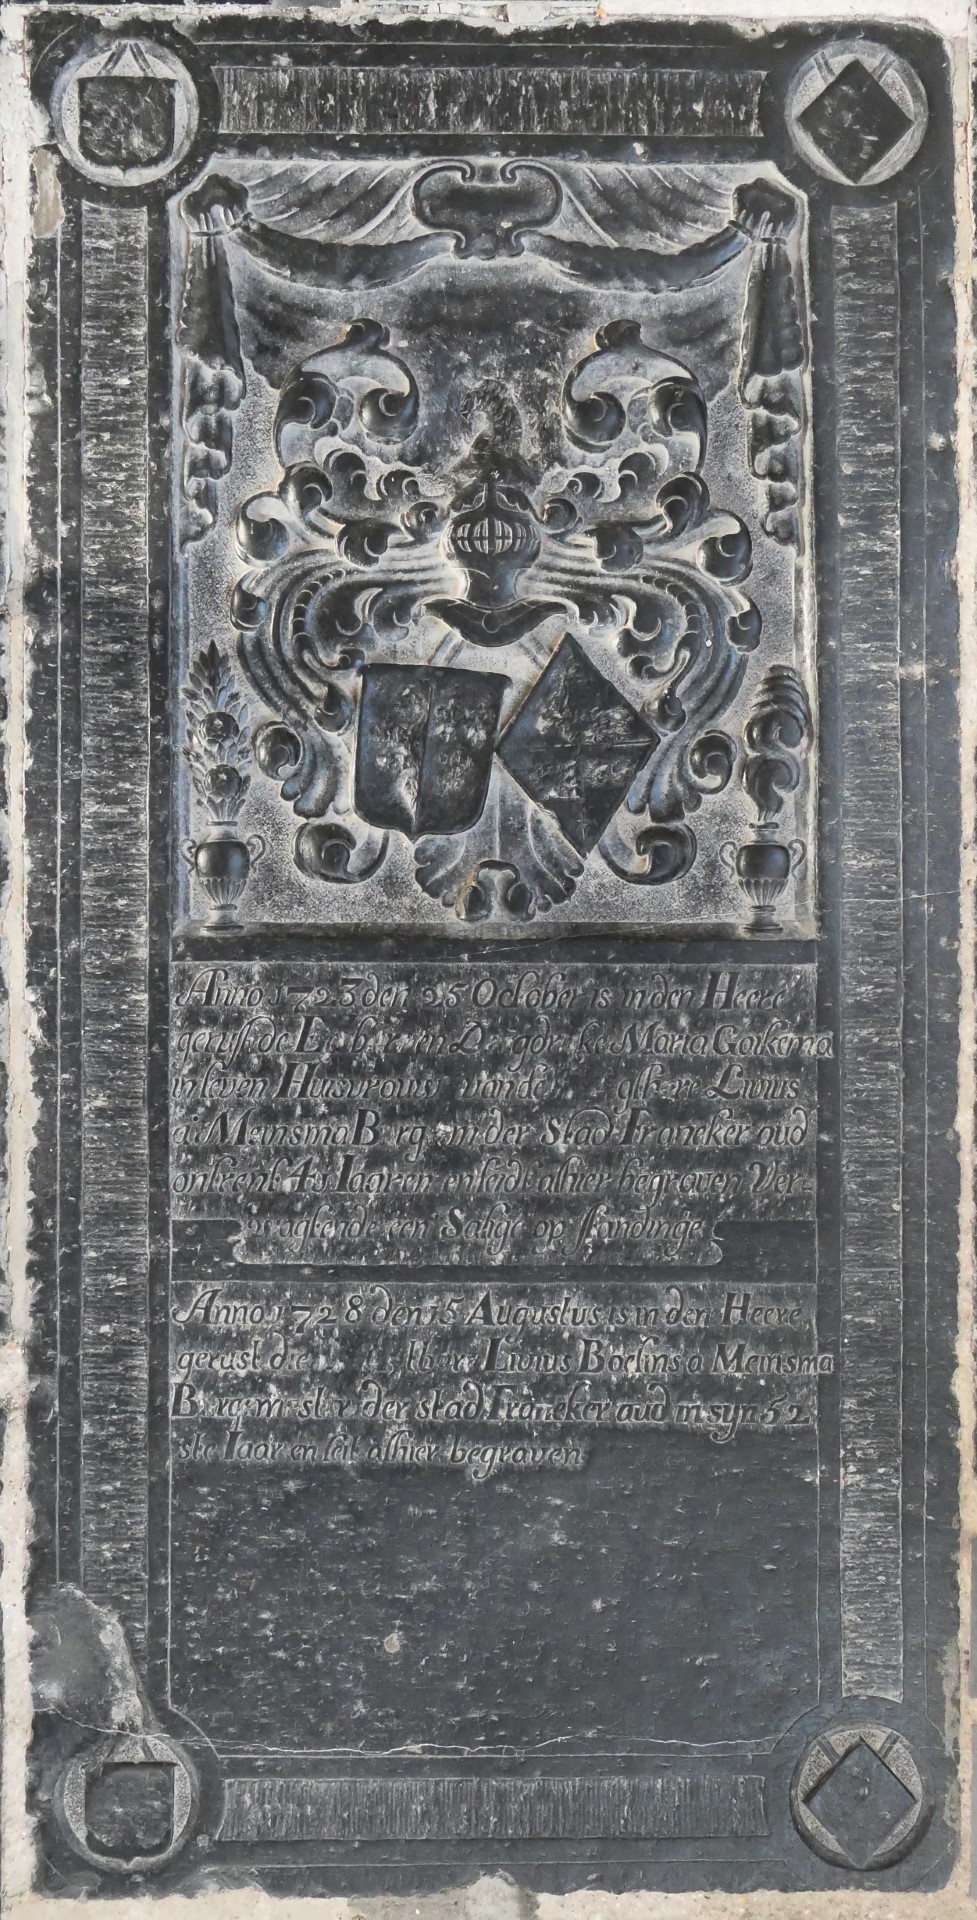 Anno 1723 den 25 October is in den Heere
gerust de Ee bare en De gdryke Maria Gaikema
in leven Huisvrouw van de Livius
Meinsma Burg in der Stad Franeker oud
ontrent 4 Iaaren en leidt alhier begraven Ver-
wagtende een Salige op standinge
Anno 1728 den 15 Augustus is in den Heere
gerust de Livius Boelinsa Meinsma
Burgemester der stad Franeker oud in syn 52
ste Iaar en leit alhier begraven